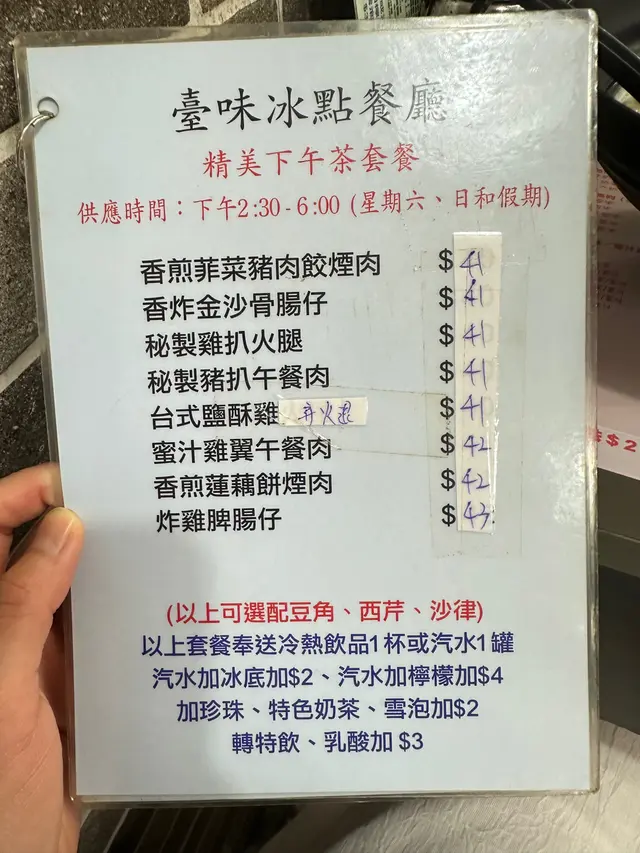 臺味冰點餐廳
精美下午茶套餐
供應時間：下午2:30-6:00 (星期六、日和假期)
香煎菲菜豬肉餃煙肉 $41
香炸金沙骨腸仔 $41
秘製雞扒火腿 $41
秘製豬扒午餐肉 $41
台式鹽酥雞 弁火腿 $41
蜜汁雞翼午餐肉 $42
香煎蓮藕餅煙肉 $42
炸雞脾腸仔 $43
(以上可選配豆角、西芹、沙律)
以上套餐奉送冷熱飲品1杯或汽水1罐
汽水加冰底加$2、汽水加檸檬加$4
加珍珠、特色奶茶、雪泡加$2
轉特飲、乳酸加 $3
$2